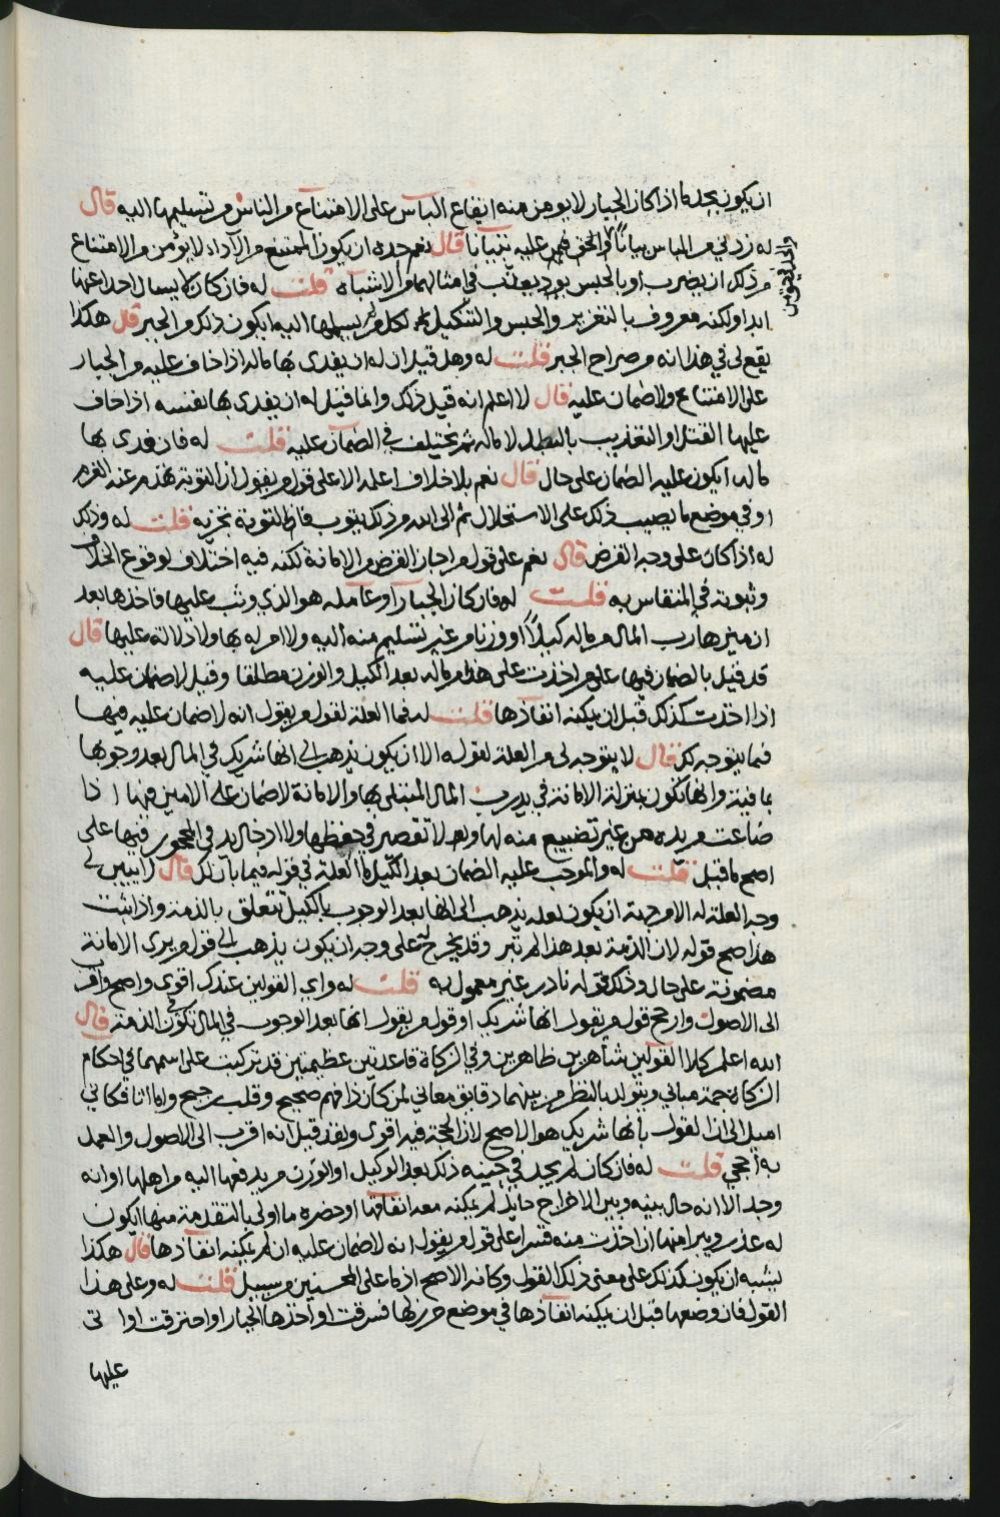 ان يكون بحد ما اذا كان الجبار لا يومن منه ايقاع الباس على الامتناع من الناس من تسليمها اليه قال
له زدني من الباس بياناً والحق فمن عليه تبيانا قال نعم حده ان يكون الممتنع من الاداء لا يؤمن من الامتناع
من ذلك ان يضرب او بالحبس يود يعذب في امثالهما والاشباه قلت له فان كان لا يسال احدا عنها
ابدا ولكنه معروف بالتعزير والحبس والتنكيل لكل من لم يسلمها اليه ايكون ذلك من الجبر قال هكذا
يقع لي في هذا انه من صراح الجبر قلت له وهل قيل ان له ان يفدى بها ماله اذا خاف عليه من الجبار
على الامتناع ولا ضمان عليه قال لا اعلم انه قيل ذلك وانما قيل له ان يفدى بها نفسه اذا خاف
عليها القتل او التعذيب بالبطل لا ماله ثم يختلف في الضمان عليه قلت له فان فدى بها
ماله ايكون عليه الضمان على حال قال نعم بلا خلاف اعلمه الا على قول من يقول ان التوبة تهدم عنه الغرم
او في موضع ما يصيب ذلك على الاستحلال ثم الى الله من ذلك يتوب فان التوبة تجزيه قلت له وذلك
له اذا كان على وجه القرض قال نعم على قول من اجاز القرض من الامانة لكنه فيه اختلاف لوقوع الخلاف
وثبوته في المنقاس به قلت له فان كان الجبار او عامله هو الذي وثب عليها فاخذها بعد
ان ميزها رب المال من ماله كيلاً او وزنا من غير تسليم منه اليه ولا امر له بها ولا دلالة عليها قال
قد قيل بالضمان فيها على من اخذت على هذا من ماله بعد الكيل والوزن مطلقا وقيل لا ضمان عليه
اذا اخذت كذلك قبل ان يمكنه انفاذها قلت له فما العلة لقول من يقول انه لا ضمان عليه فيها
فيما يتوجه لك قال لا يتوجه لي من العلة لقوله الا ان يكون يذهب الى انها شريك في المال بعد وجوبها
بما فيه وانها تكون بمنزلة الامانة في يد رب المال المبتلى بها والامانة لا ضمان على الامين فيها اذا
ضاعت من يده من غير تضييع منه لها ولا تقصير في حفظها ولا ادخال يد في المحجور فيها على
اصح ما قيل قلت له والموجب عليه الضمان بعد الكيل ما العلة في قوله فيما بان لك قال لا يبين لي
وجه العلة له الا من جهة ان يكون لعله يذهب الى انها بعد الوجوب بالكيل تتعلق بالذمة واذا ثبت
هذا صح قوله لان الذمة بعد هذا لم تبر وقد يخرج على وجه ان يكون يذهب الى قول من يرى الامانة
مضمونة على حال وذلك قول نادر غير معمول به قلت له واي القولين عندك اقوى واصح واقرب
الى الاصول وارجح قول من يقول انها شريك او قول من يقول انها بعد الوجوب في المال تكون في الذمة قال
الله اعلم كلا القولين شاهرين ظاهرين وفي الزكاة قاعدتين عظيمتين قد تركبت على اسهما في احكام
الزكاة جمة مباني ويتولد بالنظر من بينهما دقايق معاني لمن كان ذا فهم صحيح وقلب رجيح واما انا فكاني
اميل الى ان القول بانها شريك هو الاصح لان الحجة فيه اقوى ولقد قيل انه اقرب الى الاصول والعمل
به احجى قلت له فان كان لم يجد في حينه ذلك بعد الوكيل او الوزن من يدفعها اليه من اهلها او انه
وجد الا انه حال بينه وبين الاخراج حايل لم يمكنه معه انفاقها او حضره ما اولى بالتقدمة منها ايكون
له عذر ويبرا منها ان اخذت منه قسرا على قول من يقول انه لا ضمان عليه ان لم يمكنه انفاذها قال هكذا
يشبه ان يكون كذلك على معنى ذلك القول وكانه الاصح اذ ما على المحسنين من سبيل قلت له وعلى هذا
القول فان وضعها قبل ان يمكنه انفاذها في موضع حرز لها فسرقت او اخذها الجبار او احترقت او اتى
عليها